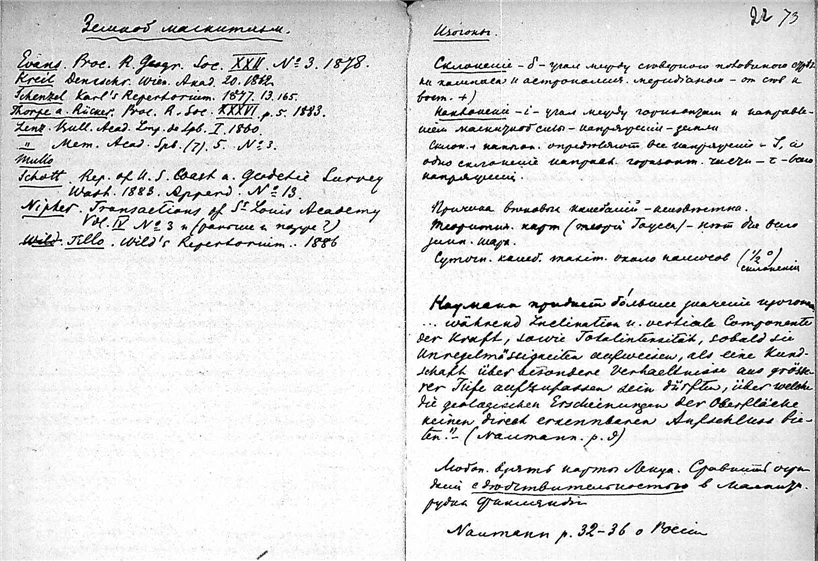 Земной магнитизм.
Evans. Proc. R. Geogr. Soc. XXII. № 3. 1878.
Kreil Denkschr. Wien. Akad. 20. 1862.
Schenzel Karl's Repertorium. 1877, 13. 165.
Thorpe a. Rücker. Proc. R. Soc. XXXVI p. 5. 1883.
Lenz. Bull. Acad. Imp. de Spb. I. 1860.
" Mem. Acad. Spb. (7). 5. № 3.
Schott. Rep. of U. S. Coast a. Geodetic Survey
Wash. 1883. Append. № 13.
Nipher. Transactions of St Louis Academy
Vol. IV № 3 и (раньше и позже?)
Wild. Tillo. Wild's Repertorium. 1886
22 73
Изогоны.
Склонение – δ – угол между северного половиною стрел
ки компаса и астрономич. меридианом – от
вост. +)
Наклонение – i – угол между горизонтом и направле
нием магнитной силы – напряжения – земли
Склон. и наклон. определяют все напряжение – I, а
одно склонение направл. горизонт. части – τ – всего
напряжения.
Причина вековых колебаний – неизвестна.
Теоретич. карт (теории Гаусса) – нет для всего
земн. шара.
Суточн. колеб. maxim. около полюсов (1/2°)
склонения
Науманн придает бо́льшее значение изогонам
... während Inclination u. verticale Componente
der Kraft, sowie Totalintensität, sobald sie
Unregelmässigkeiten aufweisen, als eine Kund-
schaft über besondere Verhaeltnisse aus grösse-
rer Tiefe aufzufassen sein dürften, über welche
die geologischen Erscheinungen der Oberfläche
keinen direct erkennbaren Aufschluss bie-
ten." – (Naumann. p. 9)
Любоп. взять карты Ленца. Сравнить
с действительностью в Магнитн.
рудн. Финляндии
Naumann p. 32–36 о России